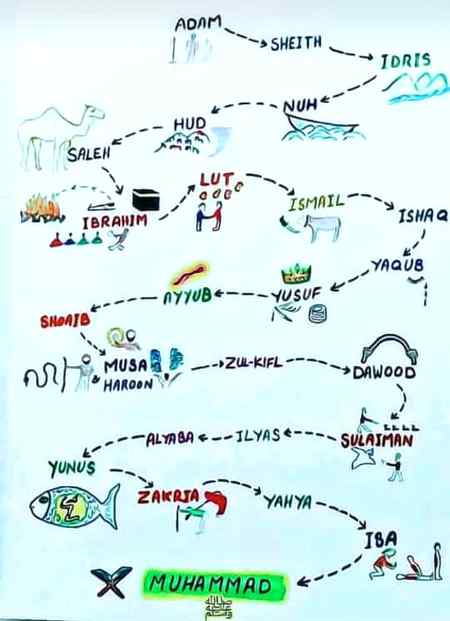 ADAM
SHEITH
IDRIS
NUH
HUD
SALEH
IBRAHIM
LUT
ISMAIL
ISHAQ
YAQUB
YUSUF
AYYUB
SHOAIB
MUSA
& HAROON
ZUL-KIFL
DAWOOD
SULAIMAN
ILYAS
ALYABA
YUNUS
ZAKRIA
YAHYA
IBA
MUHAMMAD
ﷺ